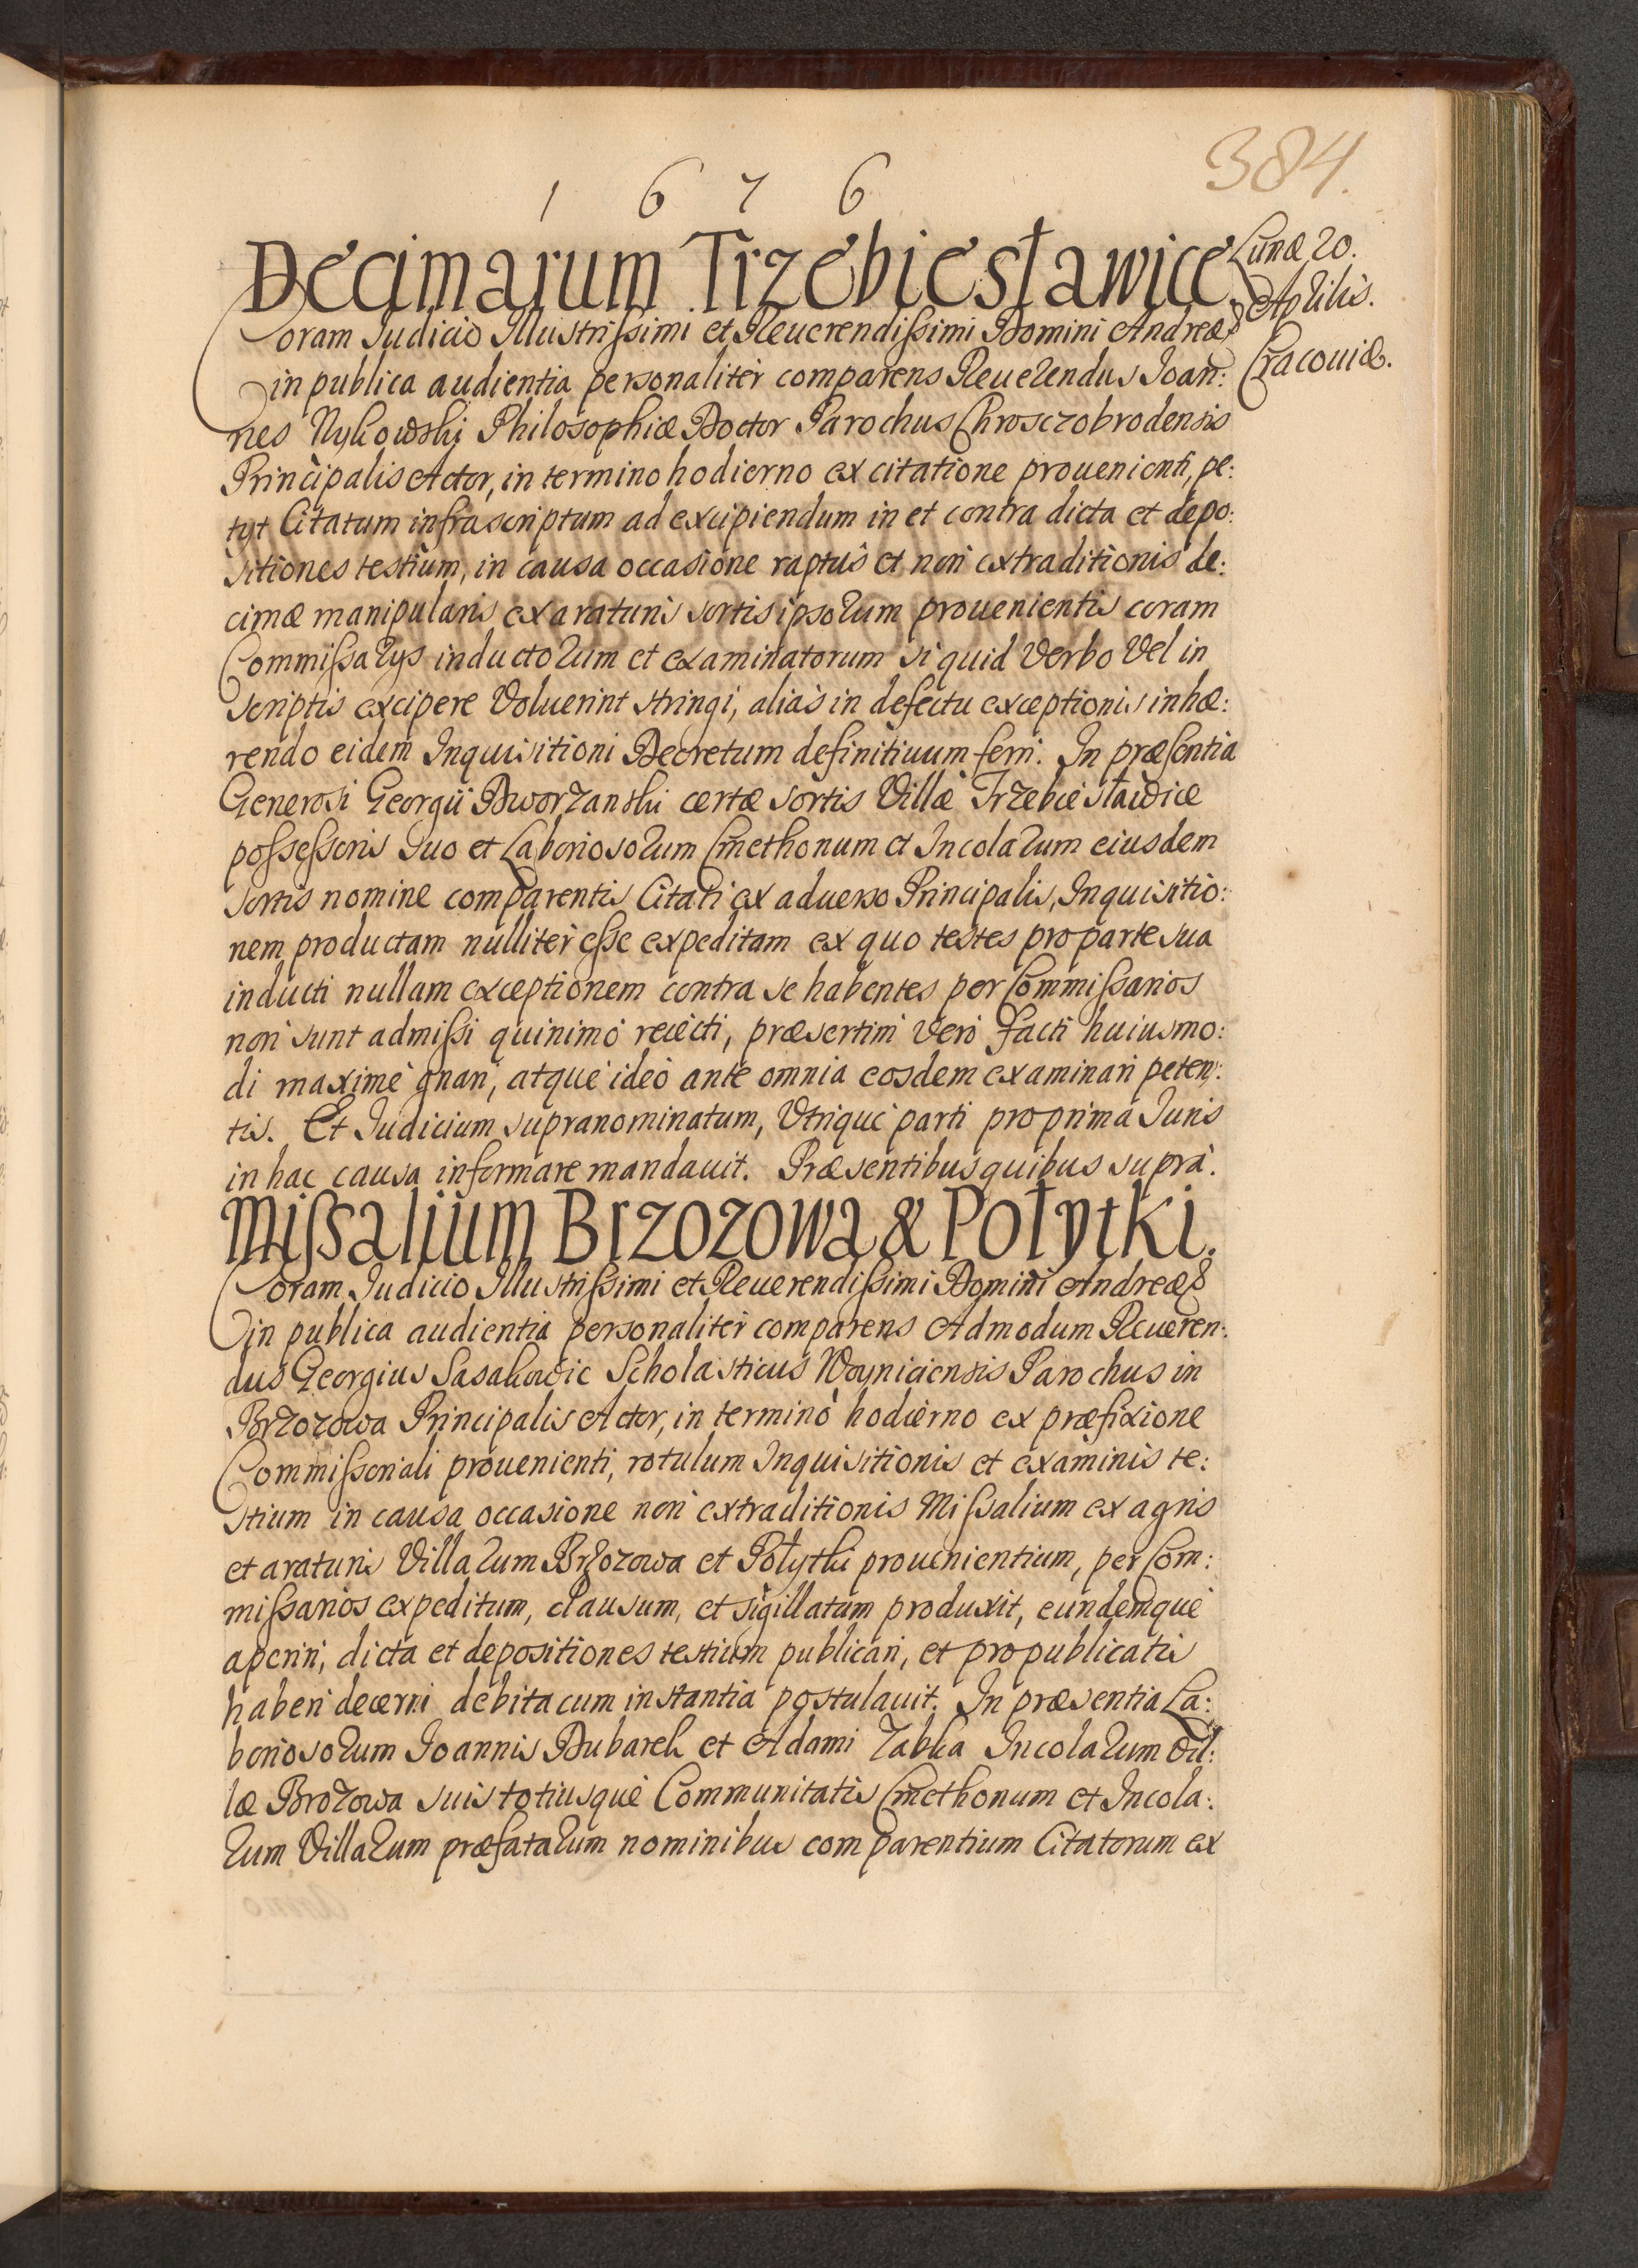 384.
1 6 7 6
Decimarum Trzebiesławice.
Lunæ 20.
Aprilis.
Cracouiæ.
Coram Judicio Illustrissimi et Reuerendissimi Domini Andreæ &
in publica audientia personaliter comparens Reuerendus Joan:
nes Nykowski Philosophiæ Doctor Parochus Chrosczobrodensis
Principalis Actor, in termino hodierno ex citatione prouenienti, pe:
tyt Citatum infrascriptum ad excipiendum in et contra dicta et depo:
sitiones testium, in causa occasione raptus et non extraditionis de:
cimæ manipularis ex araturis sortis ipsorum prouenientis coram
Commissarys inductorum et examinatorum si quid Verbo Vel in
scriptis excipere Voluerint stringi, alias in defectu exceptionis inhæ:
rendo eidem Inquisitioni Decretum definitiuum ferri. In præsentia
Generosi Georgii Dworzanski certæ sortis Villæ Trzebiesławice
possessoris suo et Laboriosorum Cmethonum et Incolarum eiusdem
sortis nomine comparentis Citati ex aduerso Principalis, Inquisitio:
nem productam nulliter esse expeditam ex quo testes pro parte sua
inducti nullam exceptionem contra se habentes per Commissarios
non sunt admissi quinimo reiecti, præsertim Vero facti huiusmo:
di maxime gnari, atque ideo ante omnia eosdem examinari peten:
tis. Et Judicium supranominatum, Utrique parti pro prima Juris
in hac causa informare mandauit. Præsentibus quibus supra.
Missalium Brzozowa & Połytki.
Coram Judicio Illustrissimi et Reuerendissimi Domini Andreæ &
in publica audientia personaliter comparens Admodum Reueren:
dus Georgius Sasakowic Scholasticus Woyniciensis Parochus in
Brzozowa Principalis Actor, in termino hodierno ex præfixione
Commissoriali prouenienti, rotulum Inquisitionis et examinis te:
stium in causa occasione non extraditionis Missalium ex agris
et araturis Villarum Brzozowa et Połytki prouenientium, per Com:
missarios expeditum, clausum, et sigillatum produxit, eundemque
aperiri, dicta et depositiones testium publicari, et pro publicatis
haberi decerni debita cum instantia postulauit. In præsentia La:
boriosorum Joannis Dubarek et Adami Zabka Incolarum Vil:
læ Brozowa suis totiusque Communitatis Cmethonum et Incola:
rum Villarum præfatarum nominibus comparentium Citatorum ex